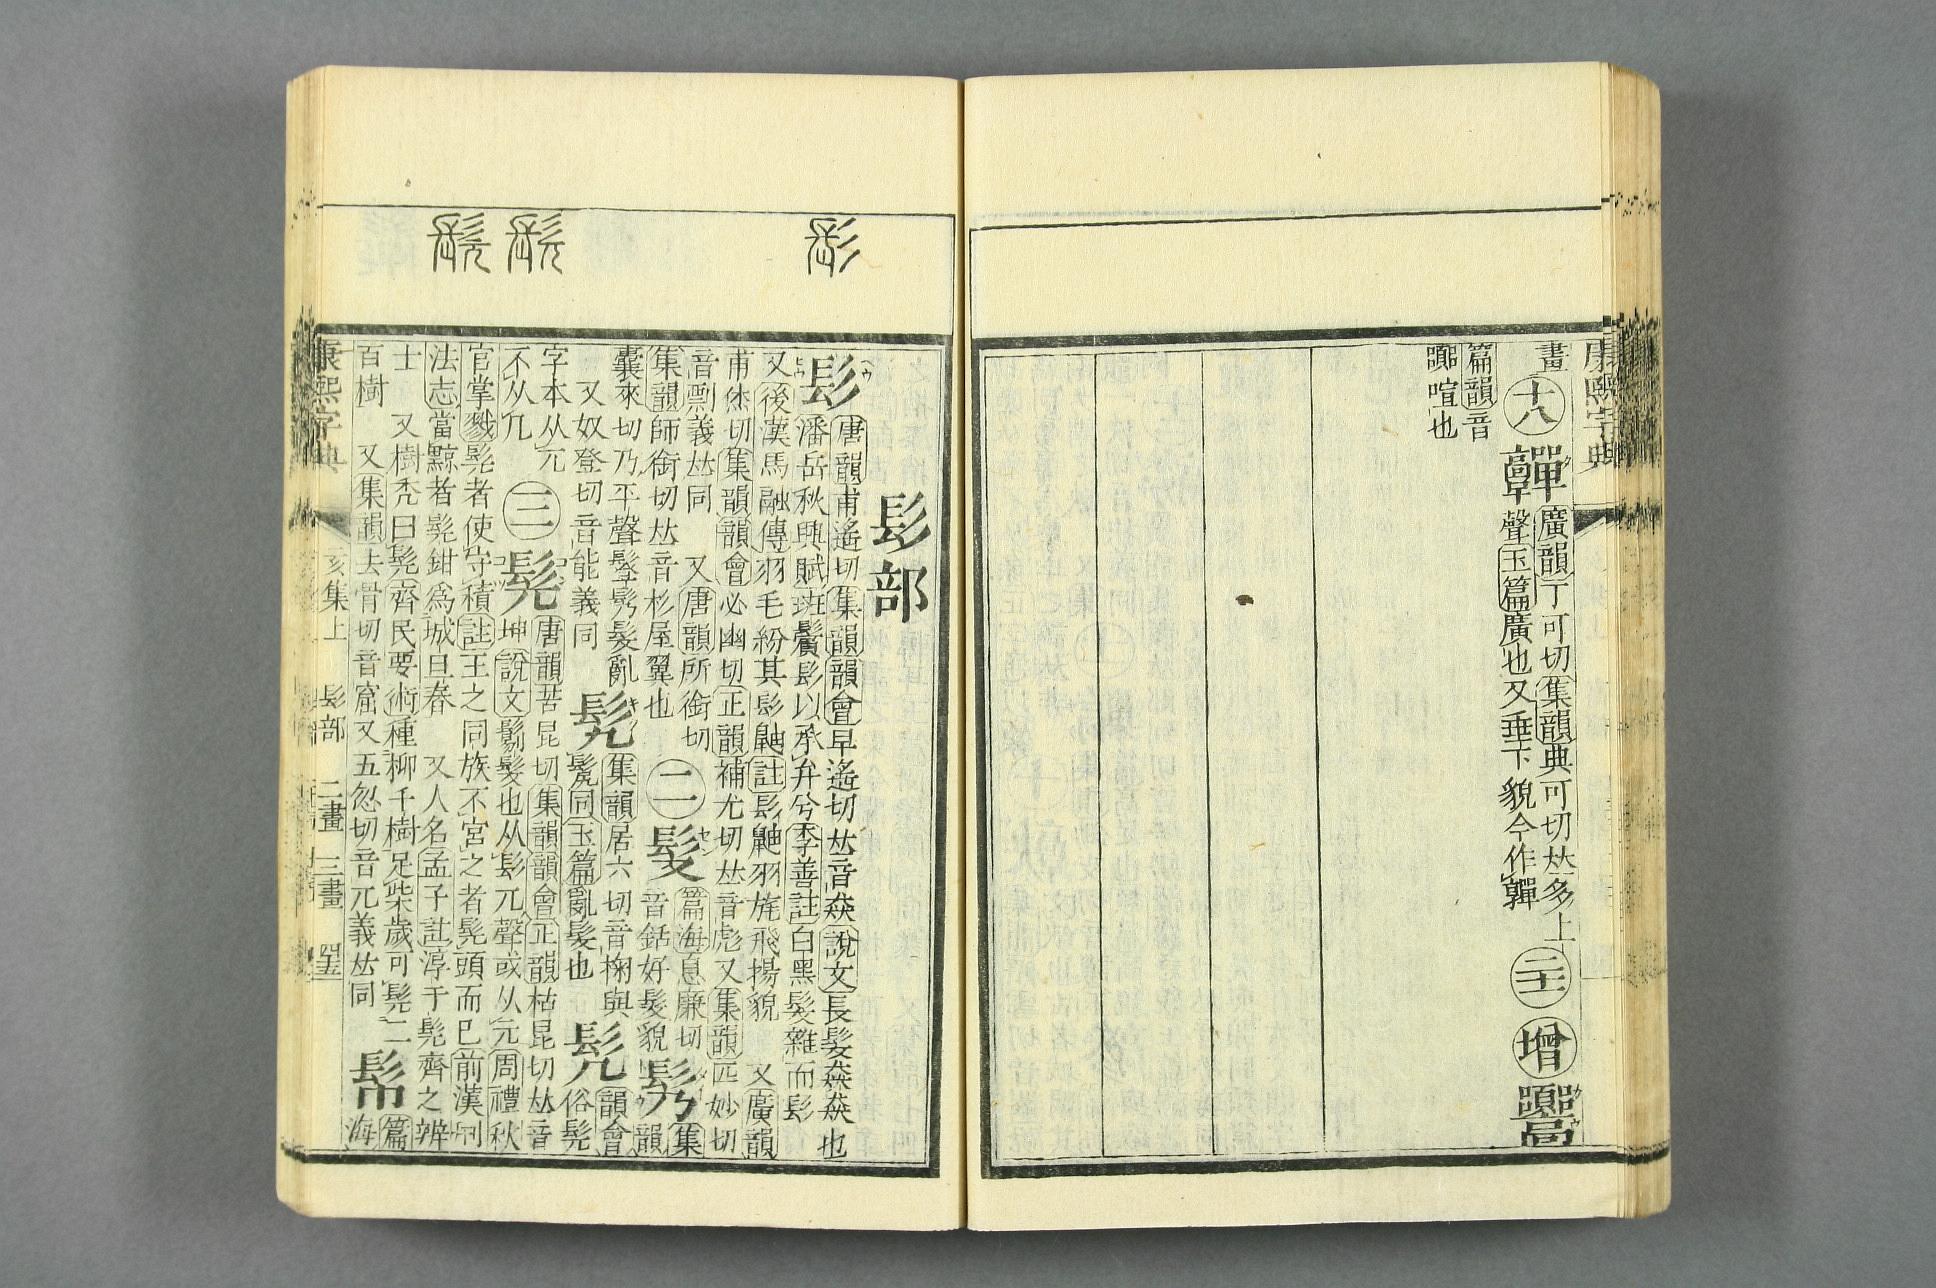 康熙字典
畫
十八
廣韻丁可切集韻典可切𠀤多上
聲玉篇廣也又垂下貌今作嚲
二十一
增
篇韻音
喧也
髟部
髟
唐韻甫遙切集韻韻會𤰞遙切𠀤音猋說文長髮猋猋也
潘岳秋興賦斑鬢髟以承弁兮李善註白黑髮雜而髟
又後漢馬融傳羽毛紛其髟鼬註髟鼬羽旄飛揚貌 又廣韻
甫烋切集韻韻會必幽切正韻補尤切𠀤音彪又集韻匹妙切
音剽義𠀤同 又唐韻所銜切
集韻師銜切𠀤音杉屋翼也
二
髪
篇海息廉切
音銛好髮貌
髣
集韻
囊來切乃平聲髼髣髮亂
又奴登切音能義同
髠
集韻居六切音掬與
鬉同玉篇亂髮也
髡
韻會
俗髡
字本从兀
不从几
三
髡
唐韻苦昆切集韻韻會正韻枯昆切𠀤音
坤說文鬀髮也从髟兀聲或从元周禮秋
官掌戮髡者使守積註王之同族不宮之者髡頭而已前漢刑
法志當黥者髡鉗爲城旦舂 又人名孟子註淳于髡齊之辨
士 又樹禿曰髡齊民要術種柳千樹足柴歲可髡二
百樹 又集韻去骨切音窟又五忽切音兀義𠀤同
篇
海
康熙字典
亥集上 髟部 二畫 三畫